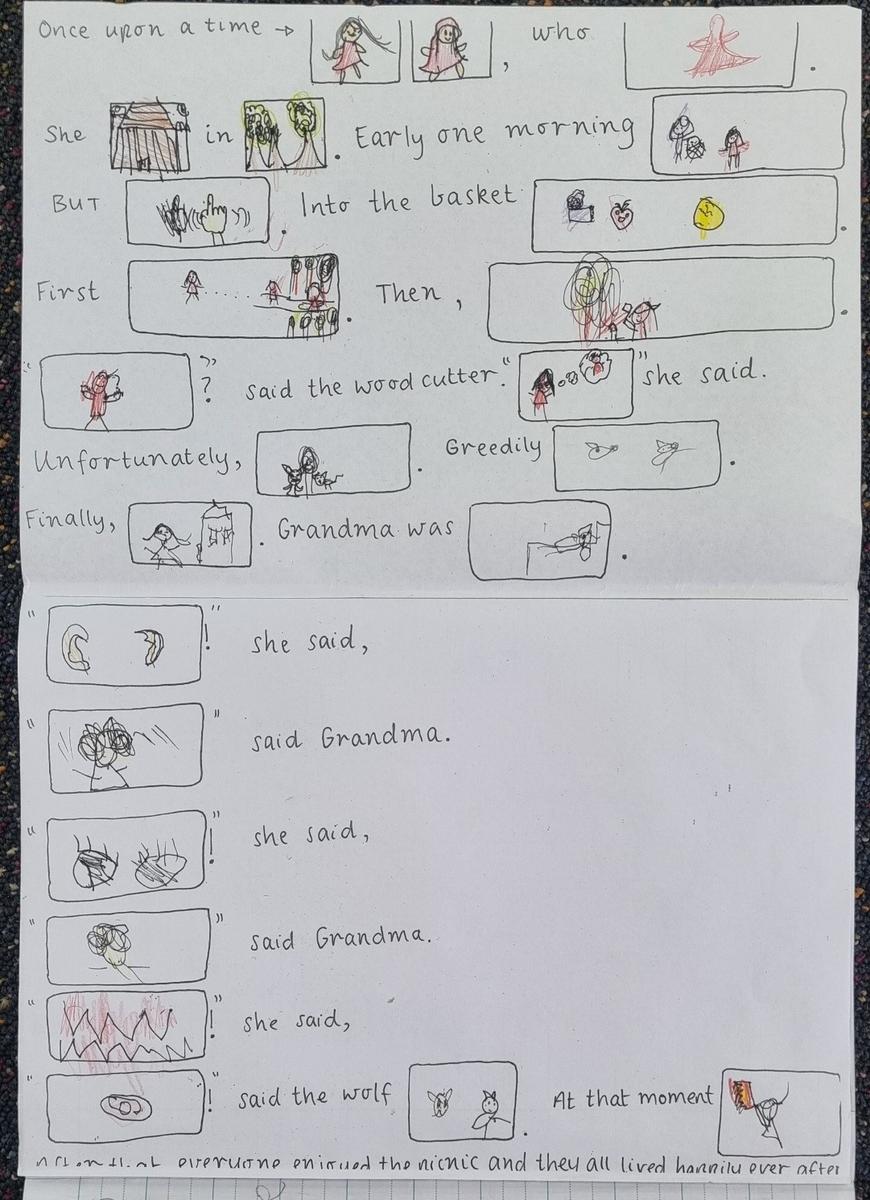 Once upon a time → , who .
She in . Early one morning
BUT . Into the basket .
First . Then , .
" "? said the woodcutter. " " she said.
Unfortunately, . Greedily .
Finally, . Grandma was .
" !" she said,
" " said Grandma.
" !" she said,
" " said Grandma.
" !" she said,
" !" said the wolf . At that moment
After that everyone enjoyed the picnic and they all lived happily ever after